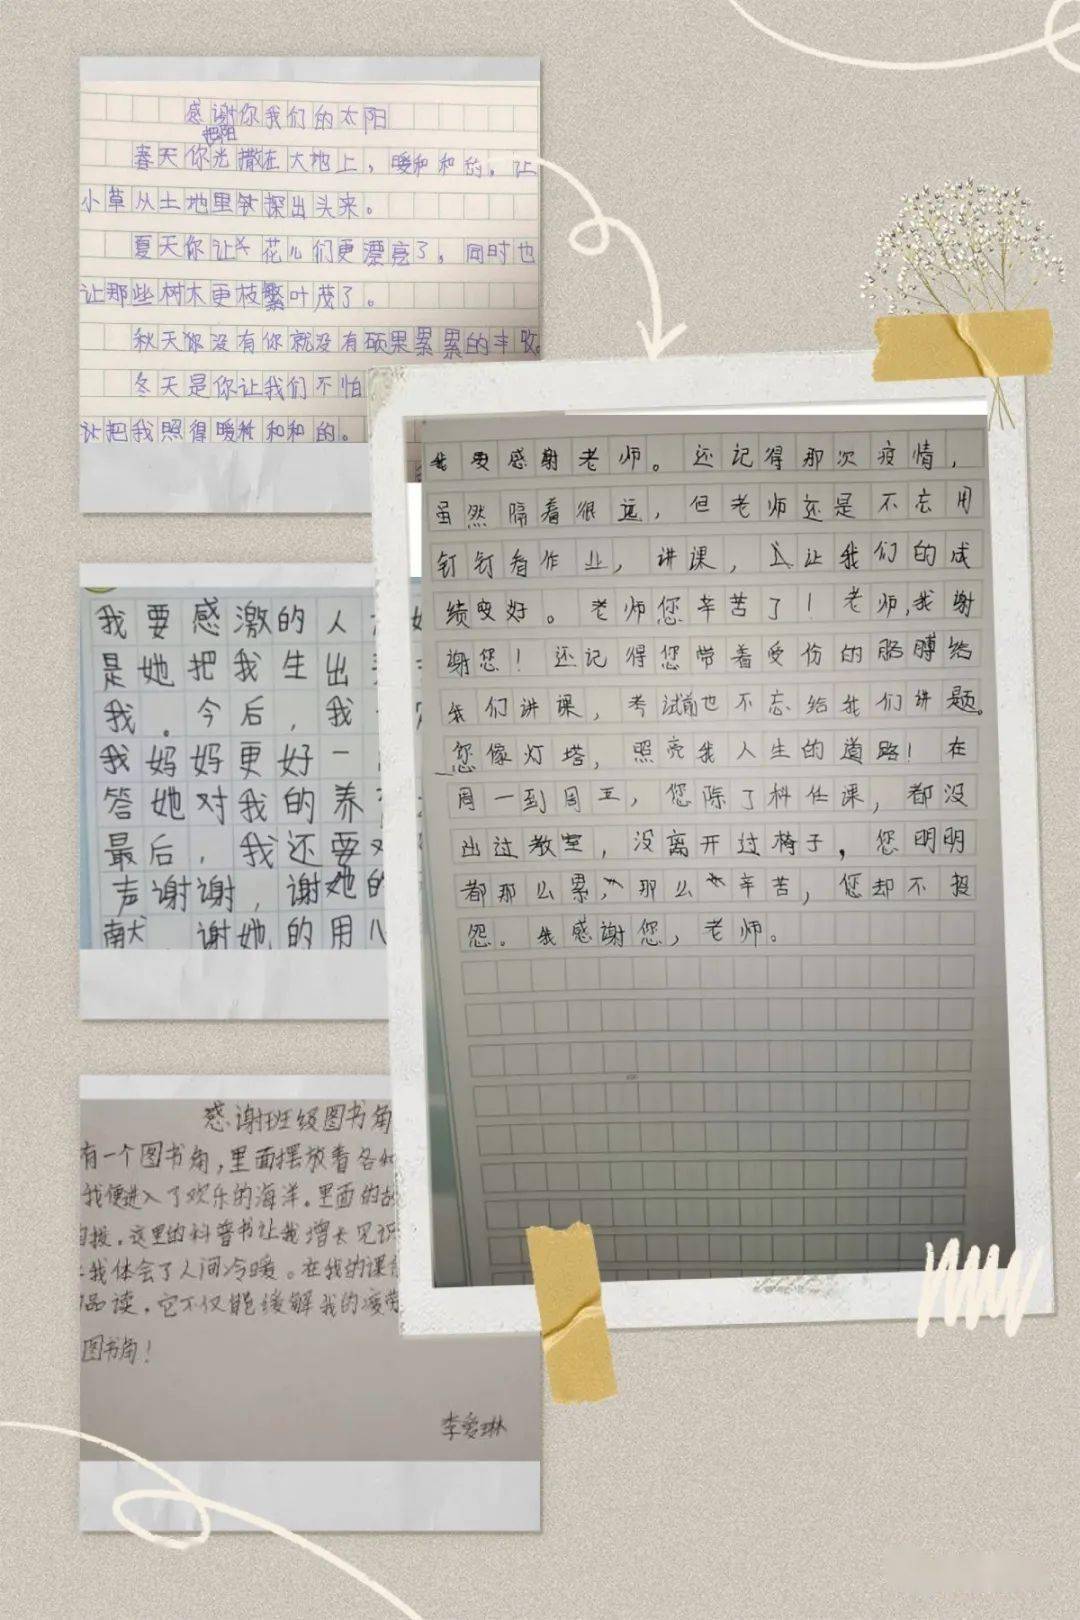 感谢你我们的太阳
把阳
春天你光撒在大地上，暖和和的。让
小草从土地里探出头来。
夏天你让花儿们更漂亮了，同时也
让那些树木更枝繁叶茂了。
秋天你没有你就没有硕果累累的丰收。
冬天是你让我们不怕
让把我照得暖和和的。
我要感激的人
是她把我生出
我．今后，我
我妈妈更好一
答她对我的养
最后，我还要对
声谢谢，谢她的
谢她的用心
感谢班级图书角
有一个图书角，里面摆放着各
我便进入了欢乐的海洋。里面的故
接，这里的科普书让我增长见识
我体会了人间冷暖。在我的课
品读，它不仅能缓解我的疲
图书角！
李爱琳
我要感谢老师。还记得那次疫情，
虽然隔着很远，但老师还是不忘用
钉钉看作业，讲课，让我们的成
绩变好。老师您辛苦了！老师，我谢
谢您！还记得您带着受伤的胳膊给
我们讲课，考试前也不忘给我们讲题。
您像灯塔，照亮我人生的道路！在
周一到周五，您除了科任课，都没
出过教室，没离开过椅子，您明明
都那么累，那么辛苦，您却不报
怨。我感谢您，老师。